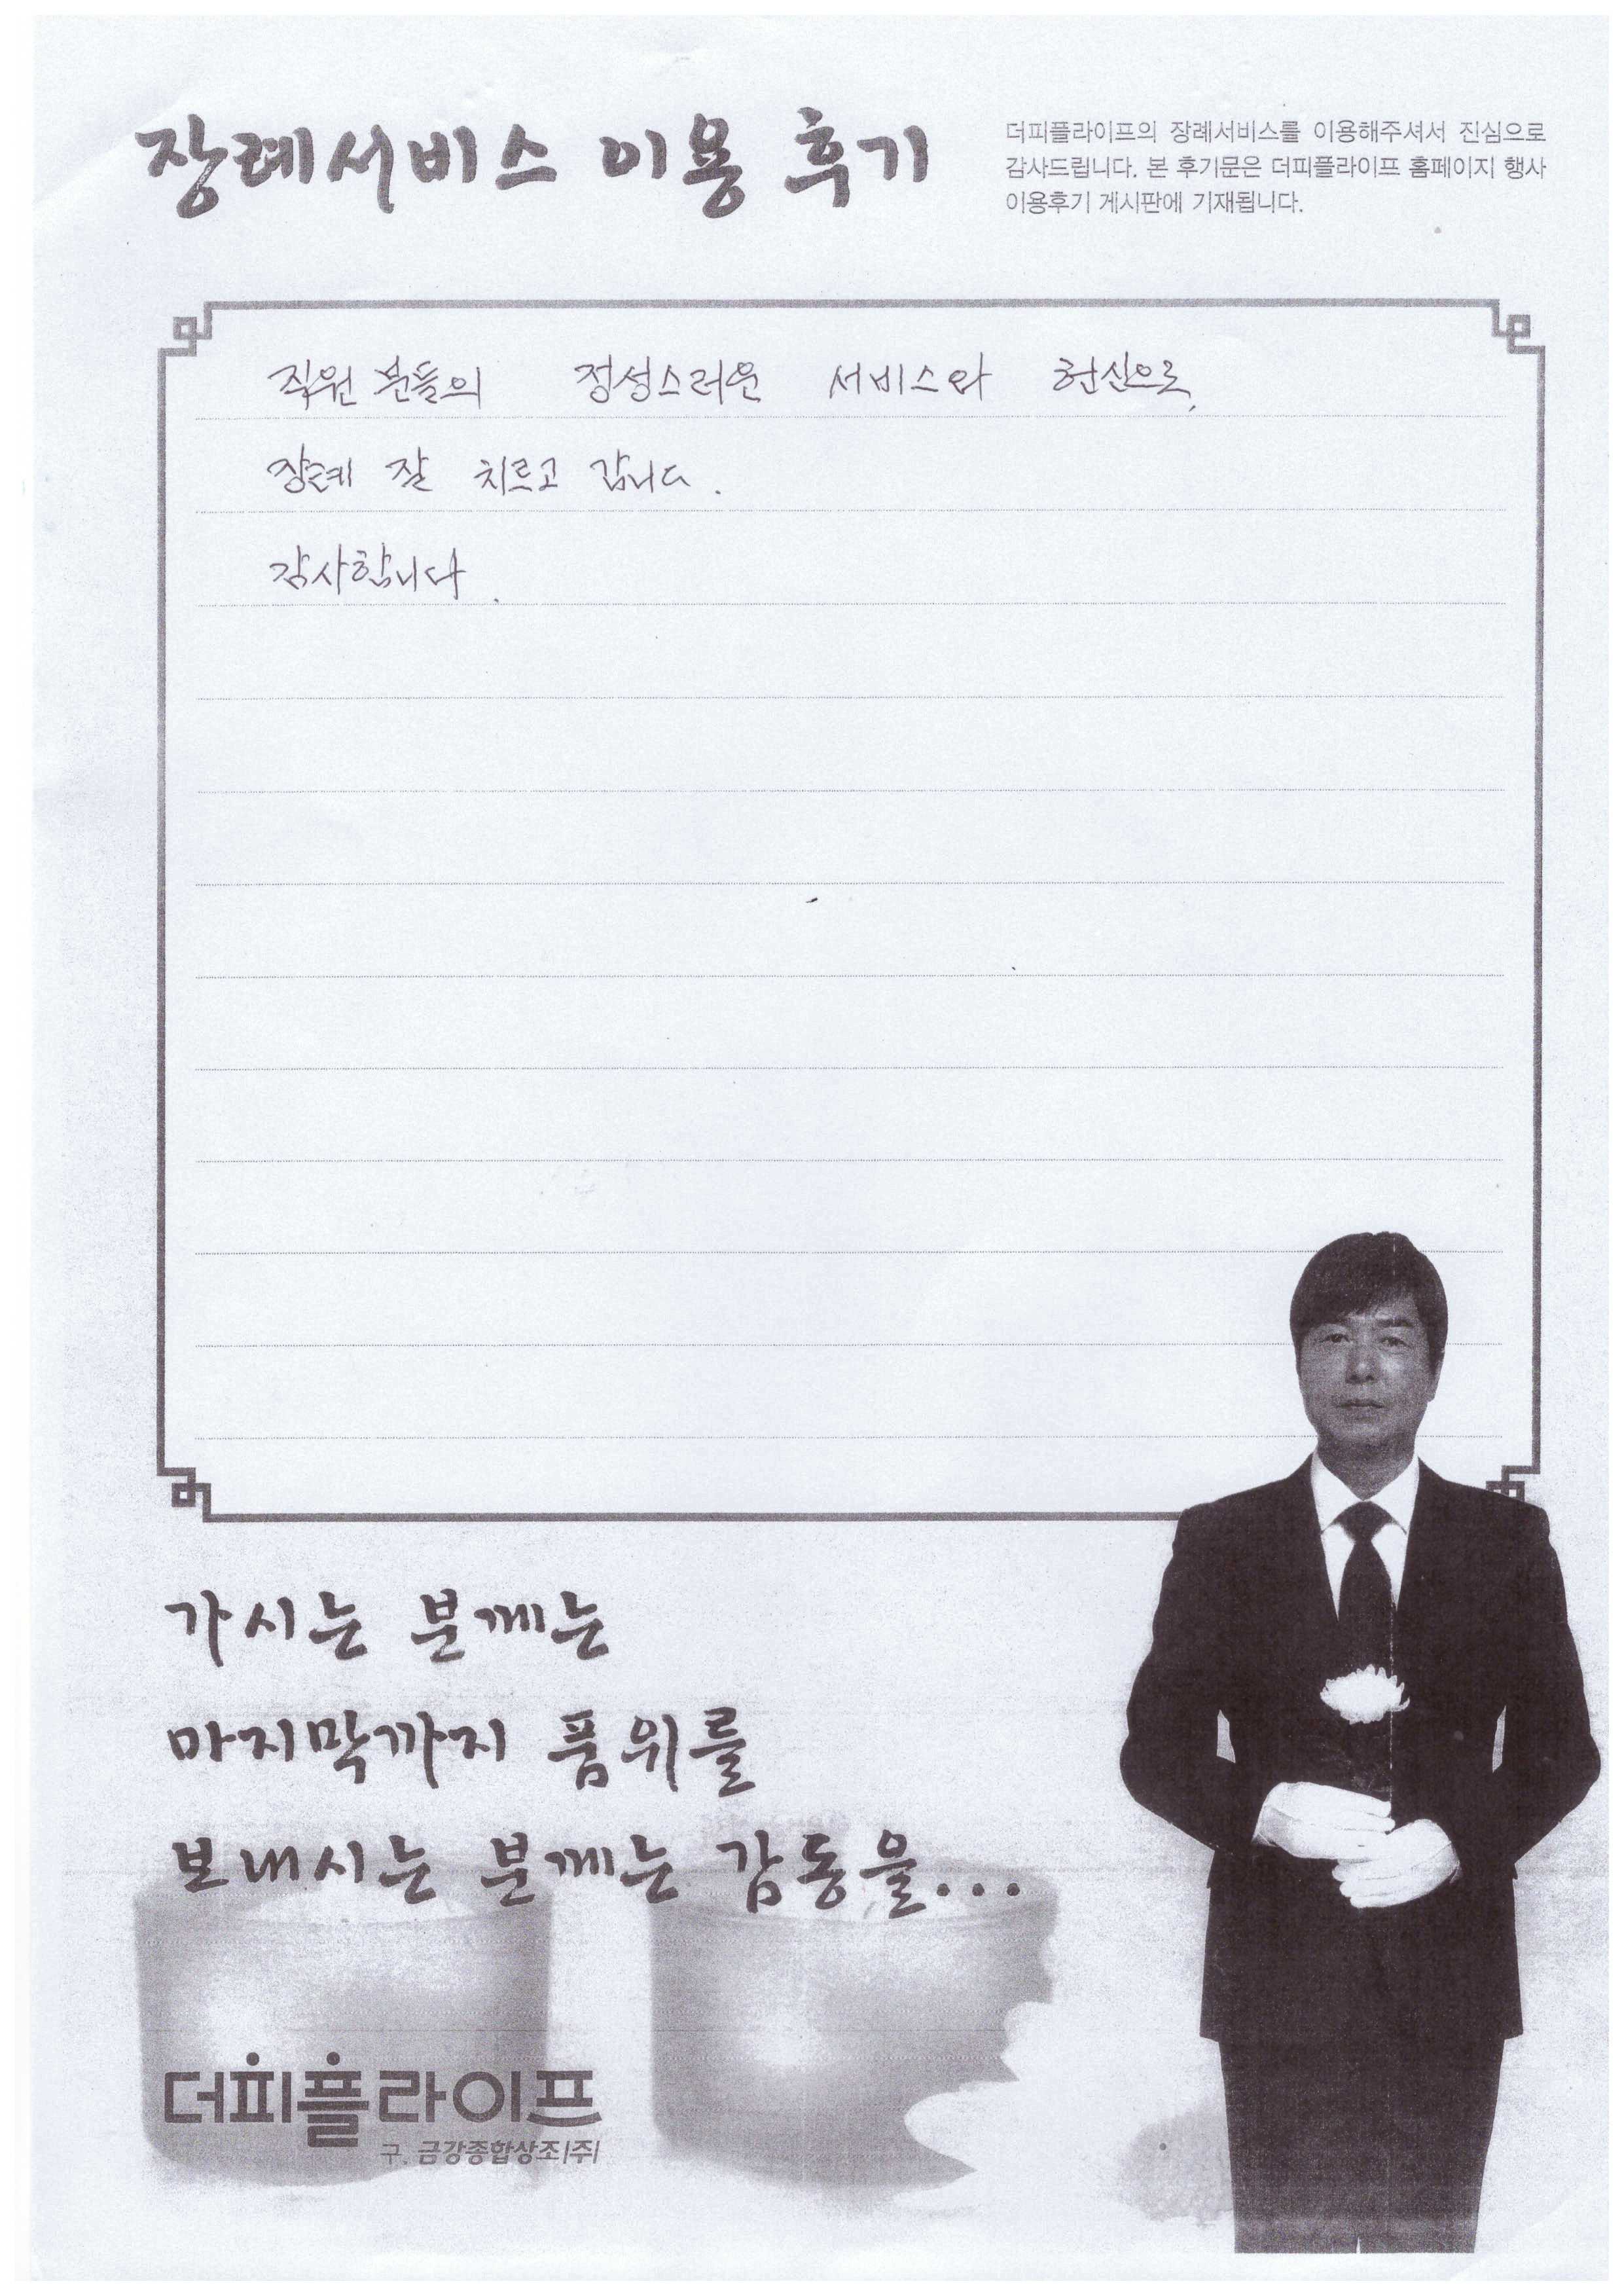 장례서비스 이용 후기
더피플라이프의 장례서비스를 이용해주셔서 진심으로
감사드립니다. 본 후기문은 더피플라이프 홈페이지 행사
이용후기 게시판에 기재됩니다.
직원 분들의 정성스러운 서비스와 헌신으로,
장례 잘 치르고 갑니다.
감사합니다.
가시는 분께는
마지막까지 품위를
보내시는 분께는 감동을...
더피플라이프
구. 금강종합상조|주|